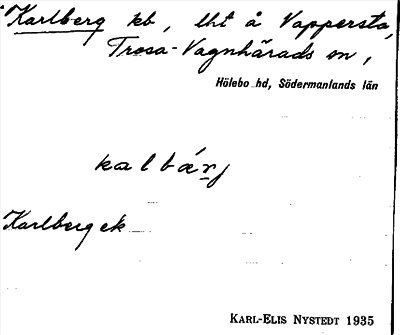 Karlberg kb, lht å Vappersta,
Trosa-Vagnhärads sn,
Hölebo hd, Södermanlands län
kalbárj
Karlberg ek
KARL-ELIS NYSTEDT 1935